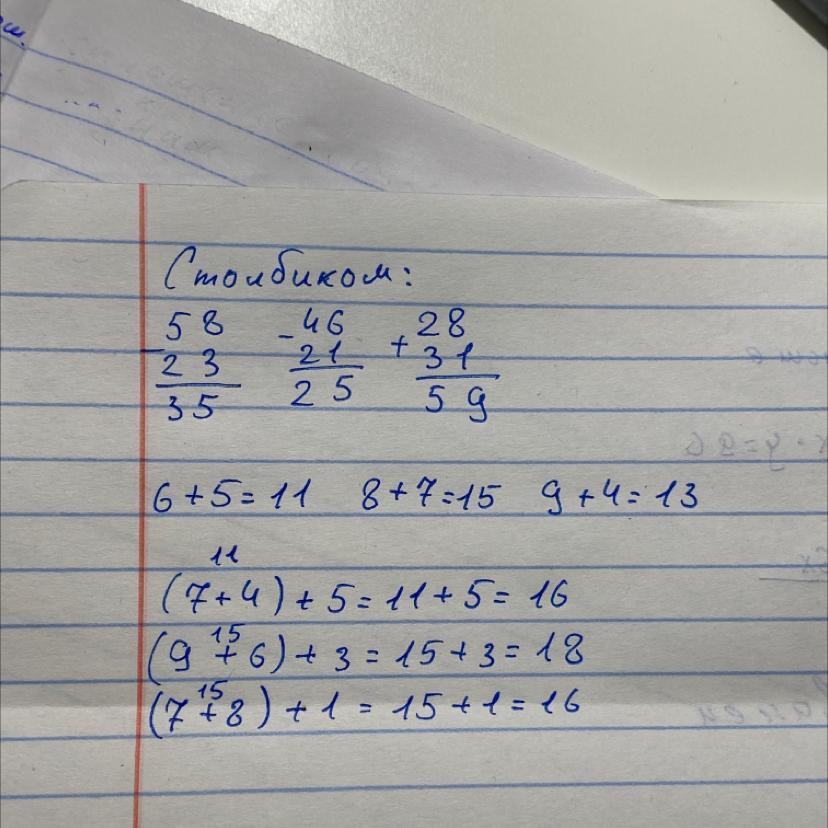 Столбиком:
58 - 46 + 28
- 23 21 31
35 25 59
6+5=11 8+7=15 9+4=13
11
(7+4)+5=11+5=16
15
(9+6)+3=15+3=18
15
(7+8)+1=15+1=16